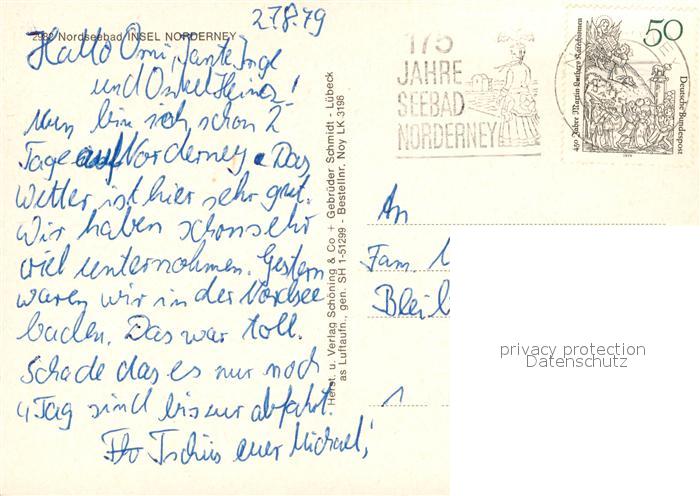 27.8.79
2982 Nordseebad INSEL NORDERNEY
Hallo Omi, Tante Inge
und Onkel Heinz!
Nun bin ich schon 2
Tage auf Norderney. Das
Wetter ist hier sehr gut.
Wir haben schon sehr
viel unternommen. Gestern
waren wir in der Nordsee
baden. Das war toll.
Schade das es nur noch
4 Tag sind bis zur abfahrt.
Tschüs euer Michael!
Herst. u. Verlag Schöning & Co + Gebrüder Schmidt - Lübeck
as Luftaufn., gen. SH 1-51299 - Bestellnr. Noy LK 3198
175
JAHRE
SEEBAD
NORDERNEY
50
450 Jahre Martin Luthers Katechismen
Deutsche Bundespost
1979
An
Fam.
Blei
1
privacy protection
Datenschutz